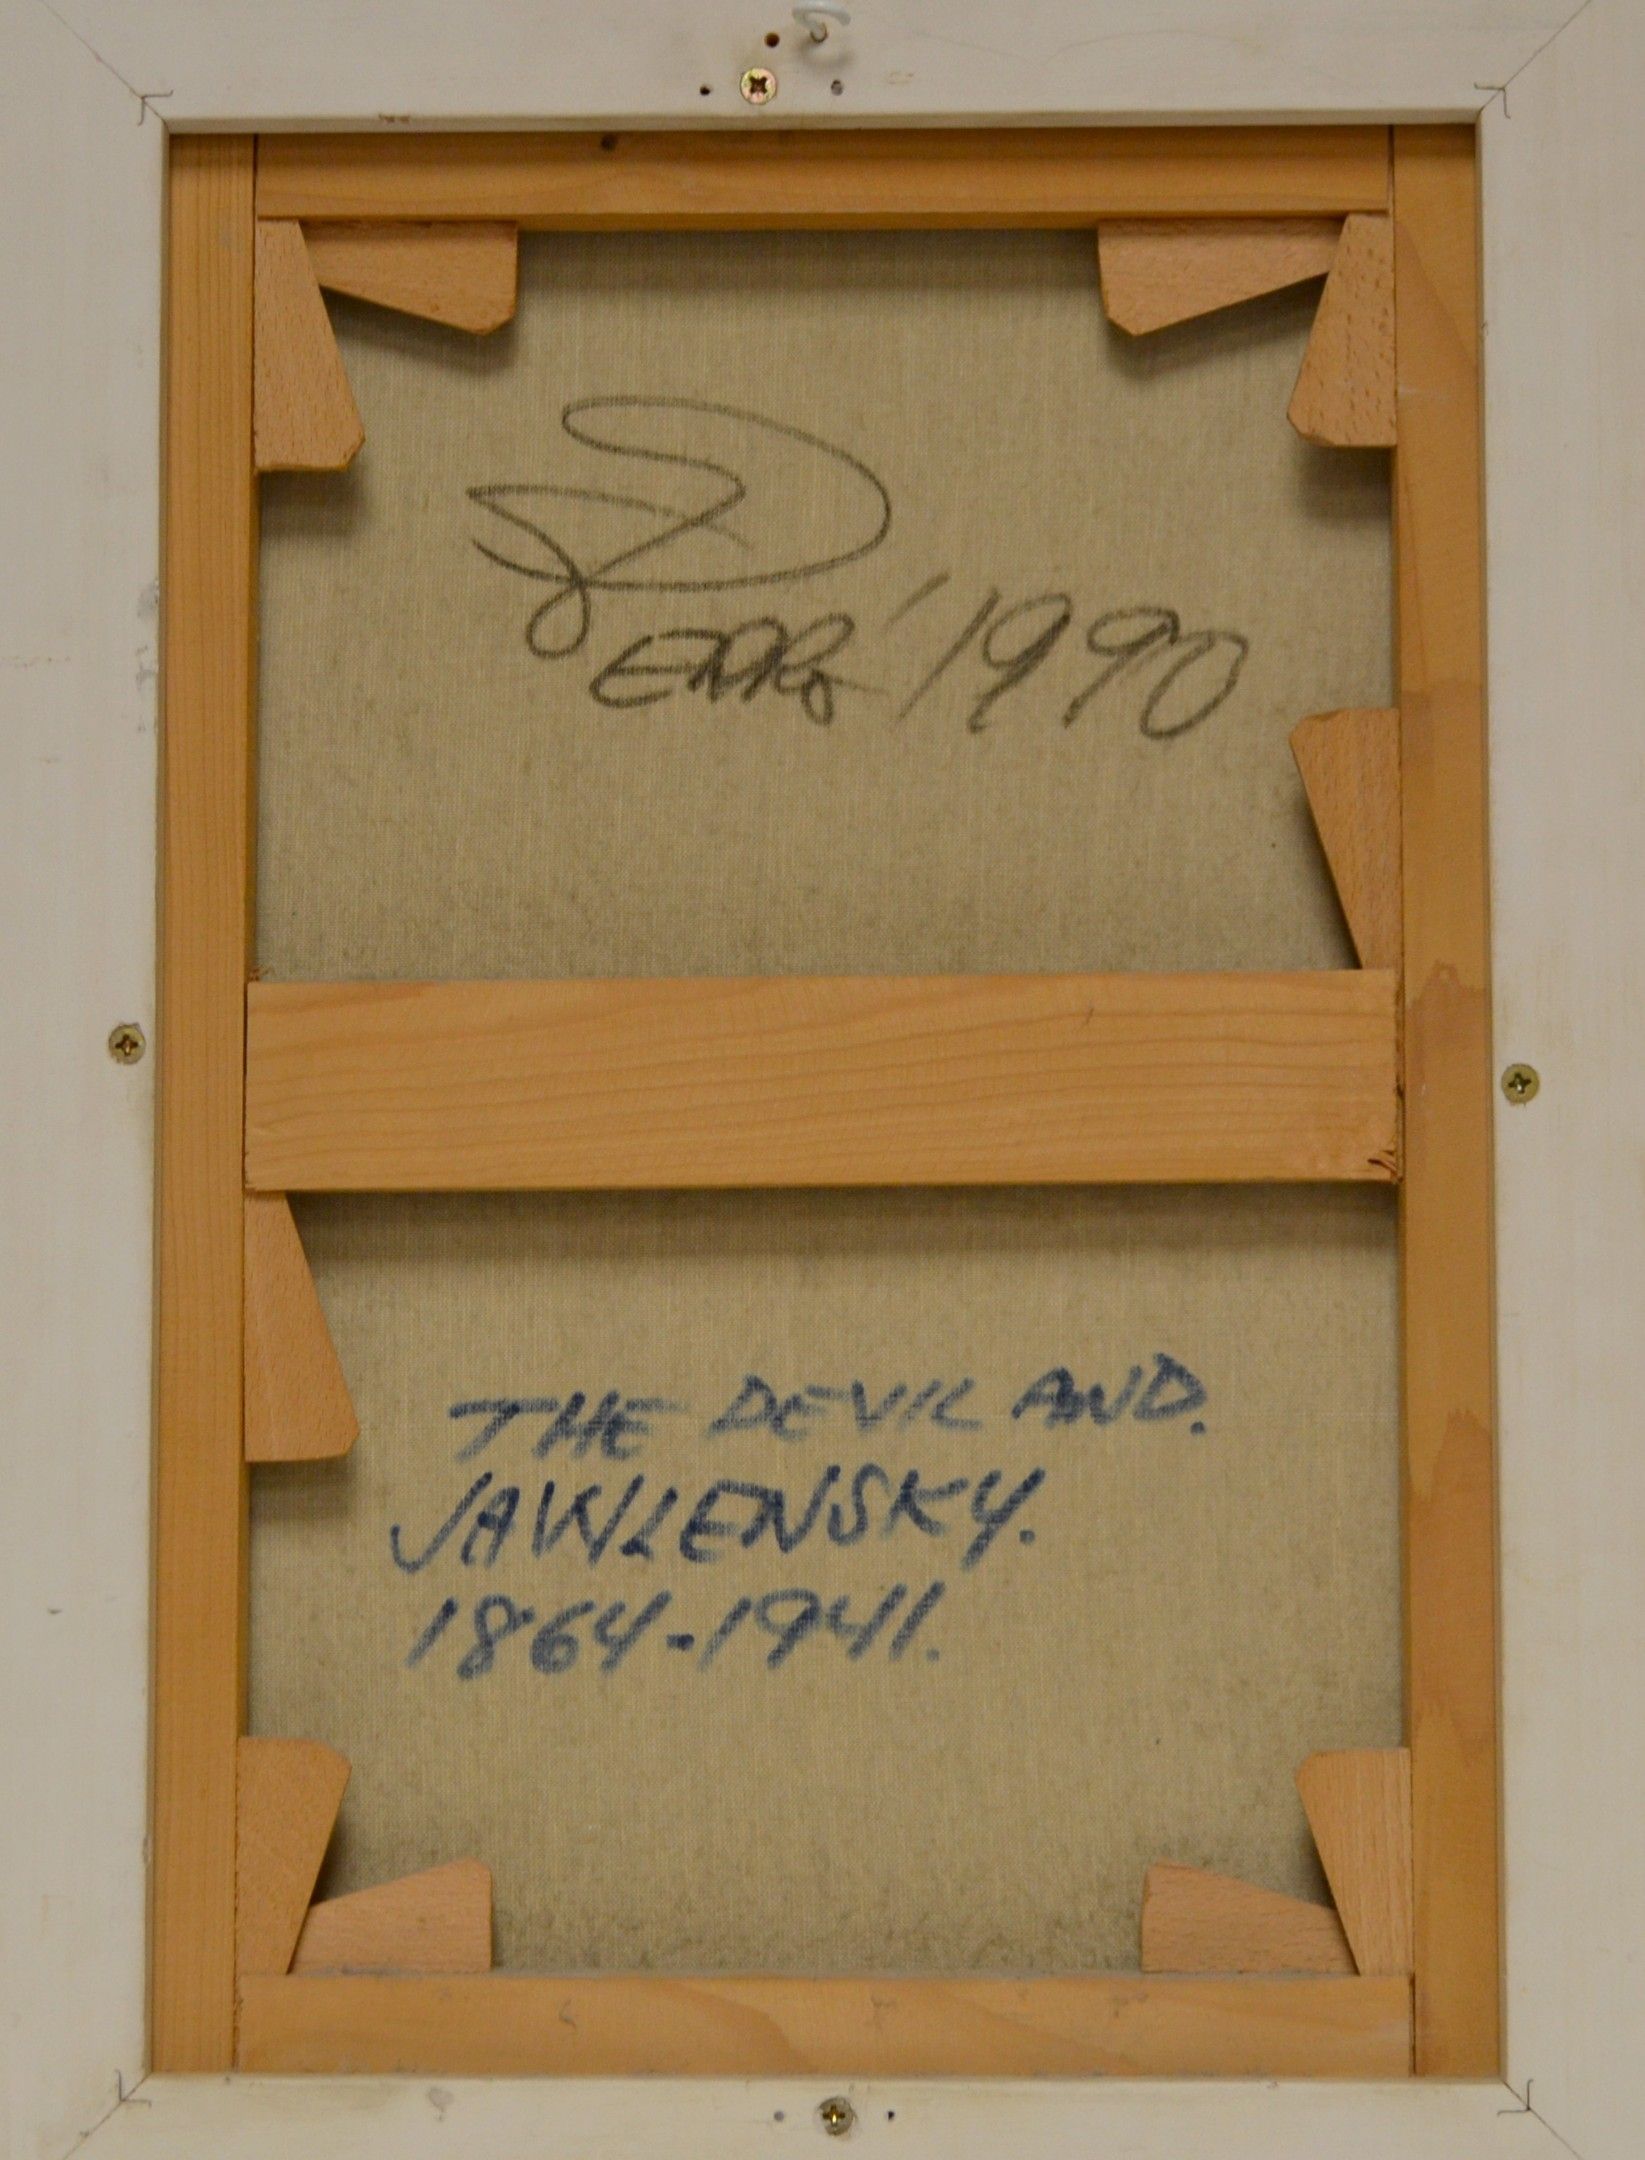 ERRO' 1990
THE DEVIL AND.
JAWLENSKY.
1864-1941.